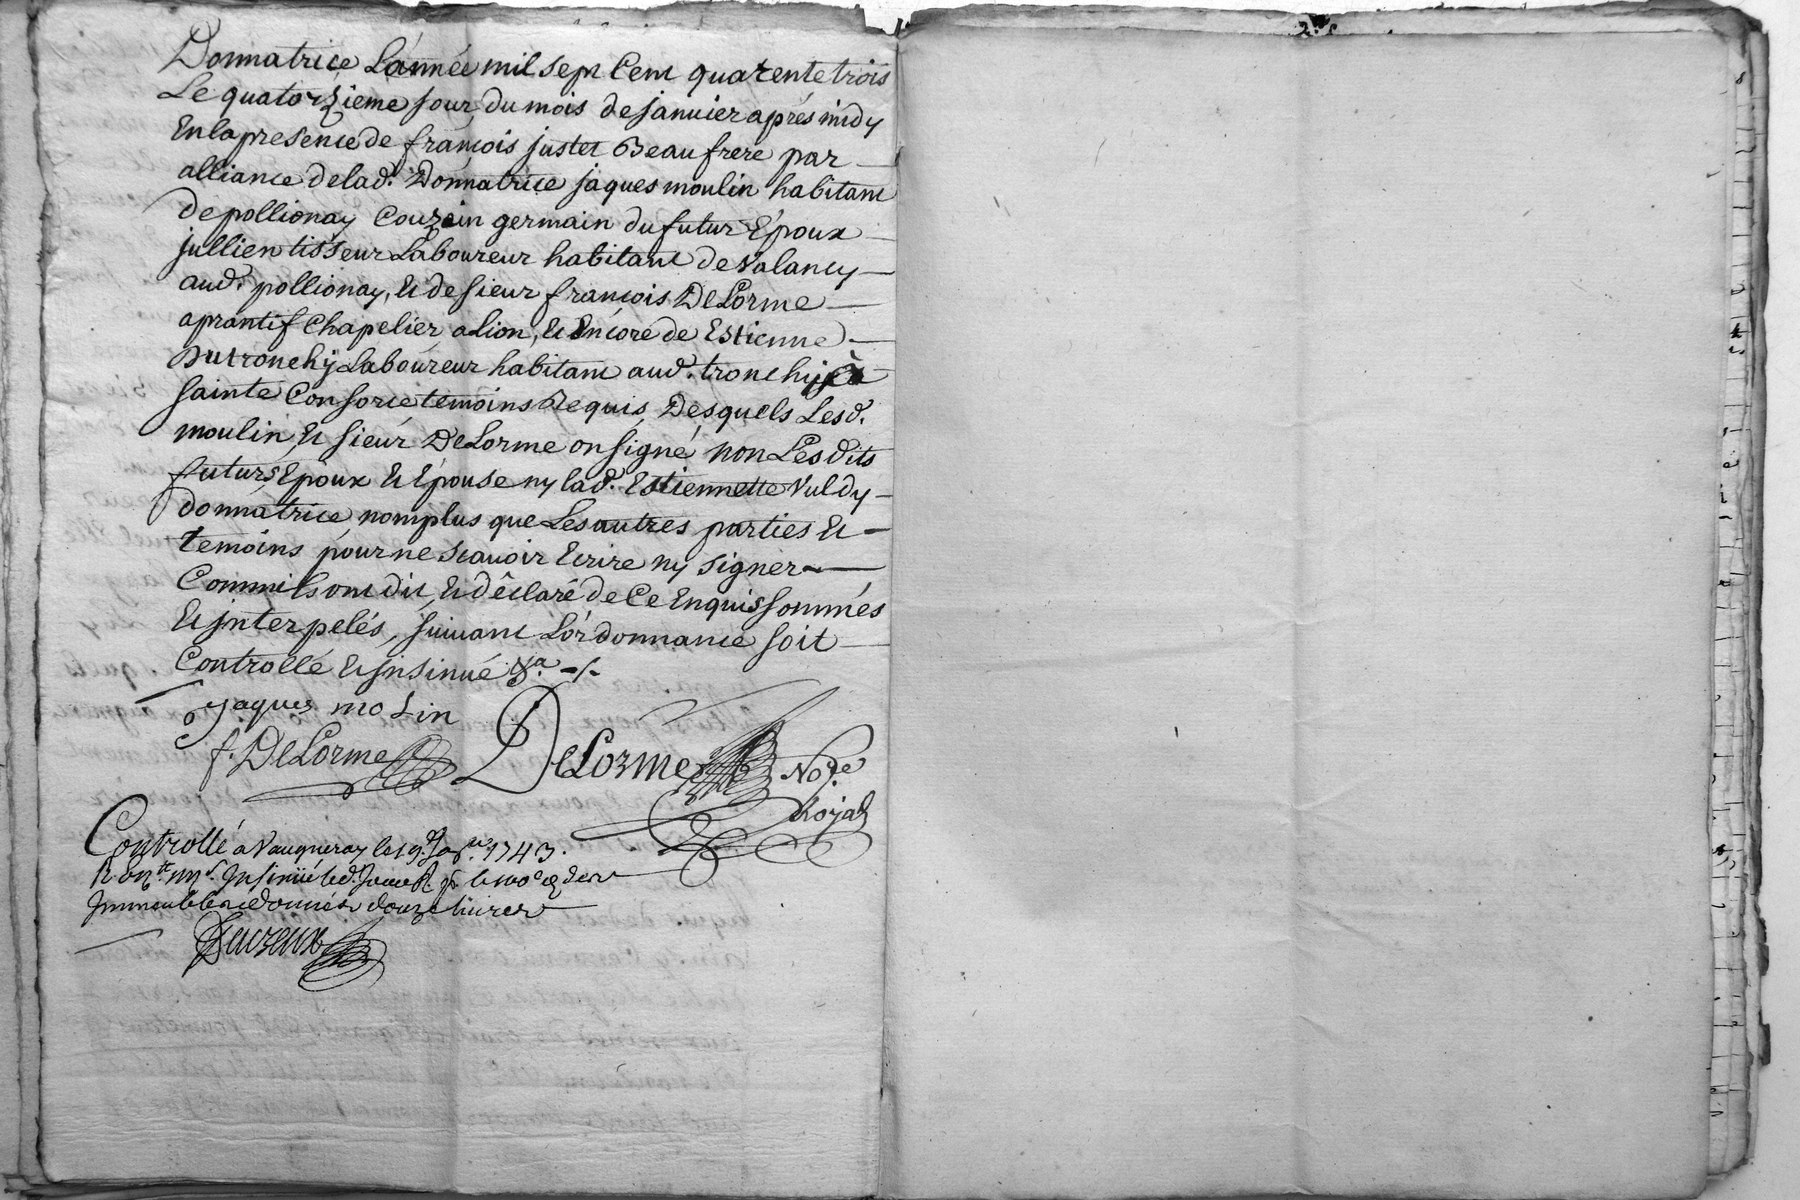 Donnatrice L'année mil sept Cent quarente trois
Le quatorzieme jour du mois de januier aprés midy
En la presence de françois justet Beaufrere par
alliance de lad. Donnatrice jaques moulin habitant
de pollionay Couzein germain du futur Epoux
jullien tisseur Laboureur habitant de Valancy
aud. pollionay, Et de sieur françois DeLorme
aprantif Chapelier a Lion, Et Encore de Estienne
Dutronchÿ Laboureur habitant aud. tronchij à
sainte Consorce temoins Requis Desquels Lesd.
moulin Et sieur DeLorme on signé non Lesdits
futurs Epoux Et Épouse ny lad. Estiennette Vuldy
donnatrice nomplus que Les autres parties Et
temoins pour ne scauoir Ecrire ny signer
Comm'ils ont dit, Et déclaré de Ce Enquis sommés
Et jnterpelés, suiuant L'ordonnance soit
Controllé Et jnsinué &a. -/-
jaques moLin
f. DeLorme DeLorme No.re
Royal
Controllé a Vaugneray le 19.
1743.
douze liures